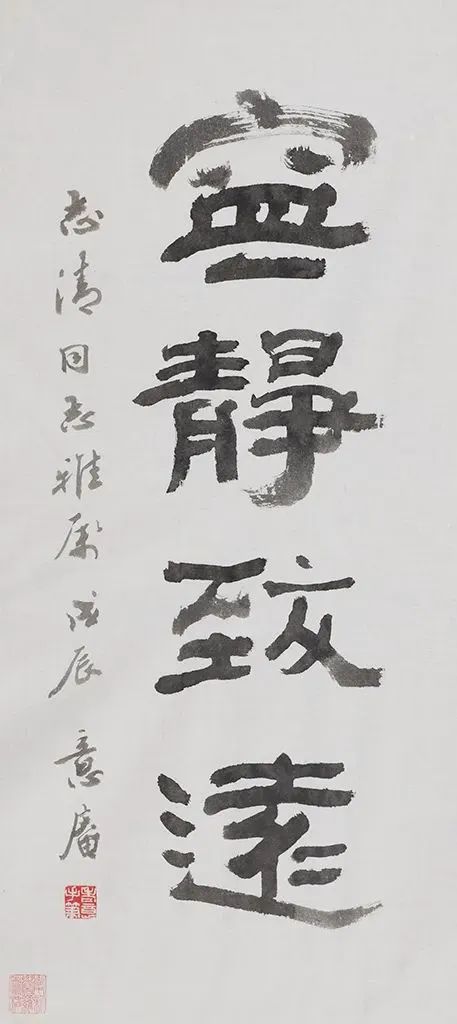 寧靜致遠
志清同志雅属 戊辰 意庵